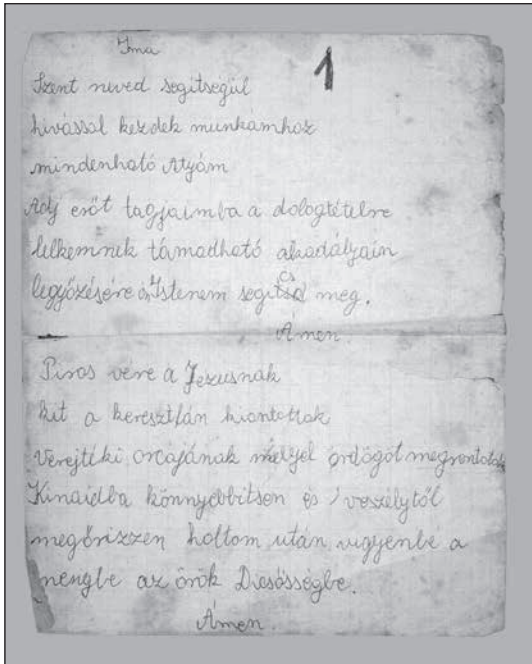 Ima
1
Szent neved segitségül
hivással kezdek munkámhoz
mindenható Atyám
Adj erőt tagjaimba a dologtételre
lelkemnek támadható akadályain
legyőzésére Istenem segits meg.
Ámen.
Piros vére a Jezusnak
kit a keresztfán kiontottak
Verejtéki orcájának melyel ördögöt megrontotak
Kinaidba könnyebbitsen és veszélytől
megőrizzen holtom után vigyenbe a
mengbe az örök Dicsősségbe.
Ámen.